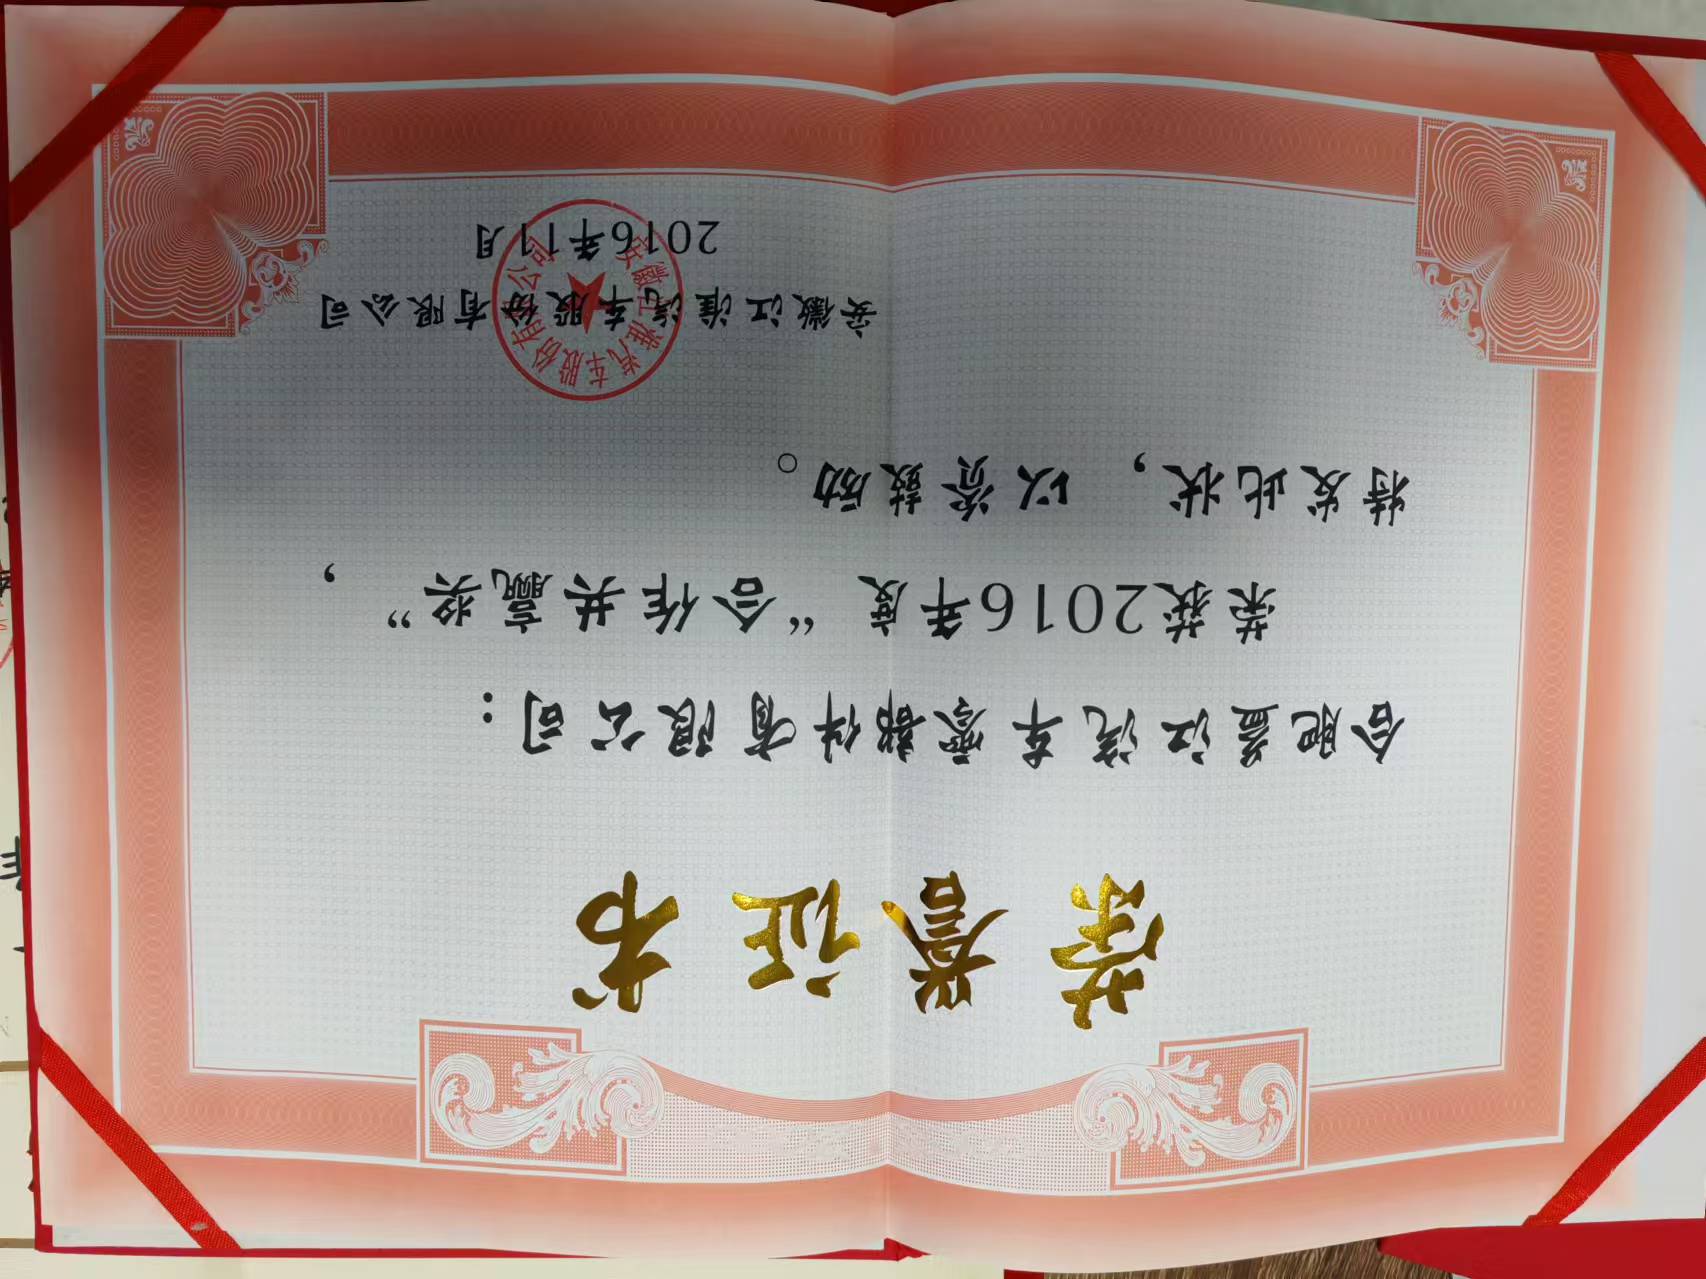 荣誉证书
合肥益江汽车零部件有限公司：
荣获2016年度“合作共赢奖”，
特发此状，以资鼓励。
安徽江淮汽车股份有限公司
2016年11月
安徽江淮汽车股份有限公司